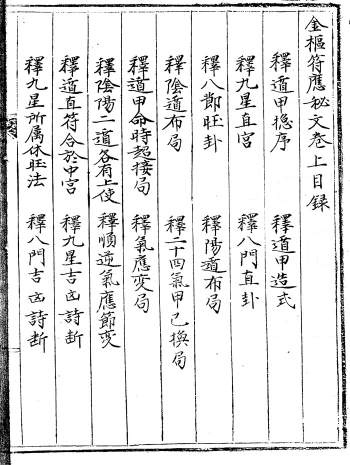 金樞符應秘文卷上目録
釋遁甲總序　釋遁甲造式
釋九星直宫　釋八門直卦
釋八節旺卦　釋陽遁布局
釋陰遁布局　釋二十四氣甲己換局
釋遁甲命時超接局　釋氣應變局
釋陰陽二遁各有上使　釋順逆氣應節變
釋遁直符合於中宫　釋九星吉凶詩断
釋九星所属休旺法　釋八門吉凶詩断